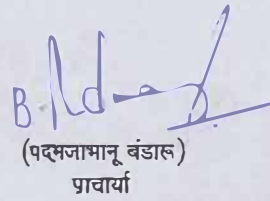 (पदमजाभानू बंडारू)
प्राचार्या